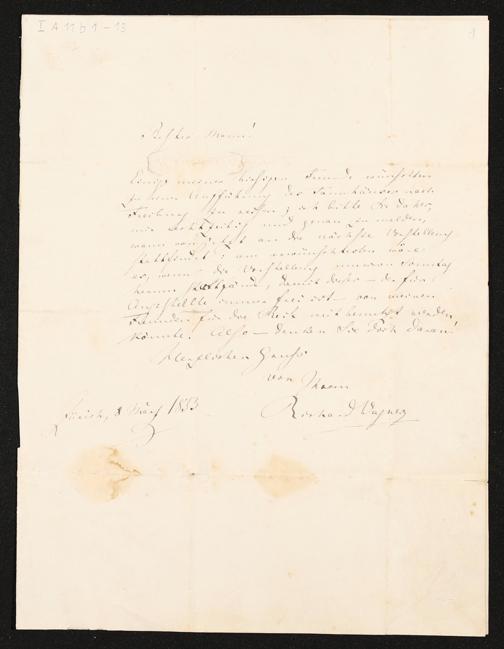 I A 11 b 1-13
1
Bester Mann!
Einige meiner hiesigen Freunde wünschten
zu einer Aufführung des Tannhäuser nach
Freiburg zu reisen; ich bitte Sie daher,
mir rechtzeitig und genau zu melden,
wann von jetzt an die nächste Vorstellung
stattfindet; am erwünschtesten wäre
es, wenn die Vorstellung an einem Sonntag
stattfände, damit dieser — der für
Angestellte immer frei ist — von meinen
Freunden für die Reise mit benutzt werden
könnte. Also — denken Sie doch daran!
Herzlichen Gruß
von Ihrem
Richard Wagner
Zürich, 8 März 1853